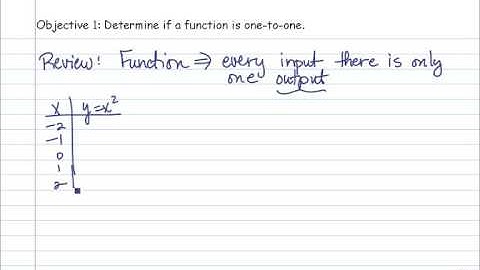 Objective 1: Determine if a function is one-to-one.
Review: Function ⇒ every input there is only
one output
x y=x²
-2
-1
0
1
2